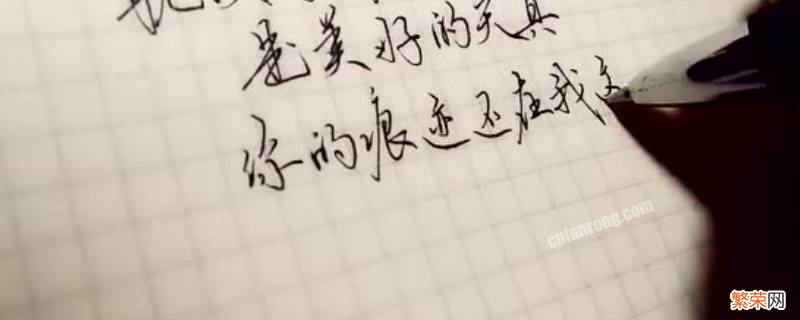 是美好的天
你的痕迹还在我
cnfanrong.com
繁荣网